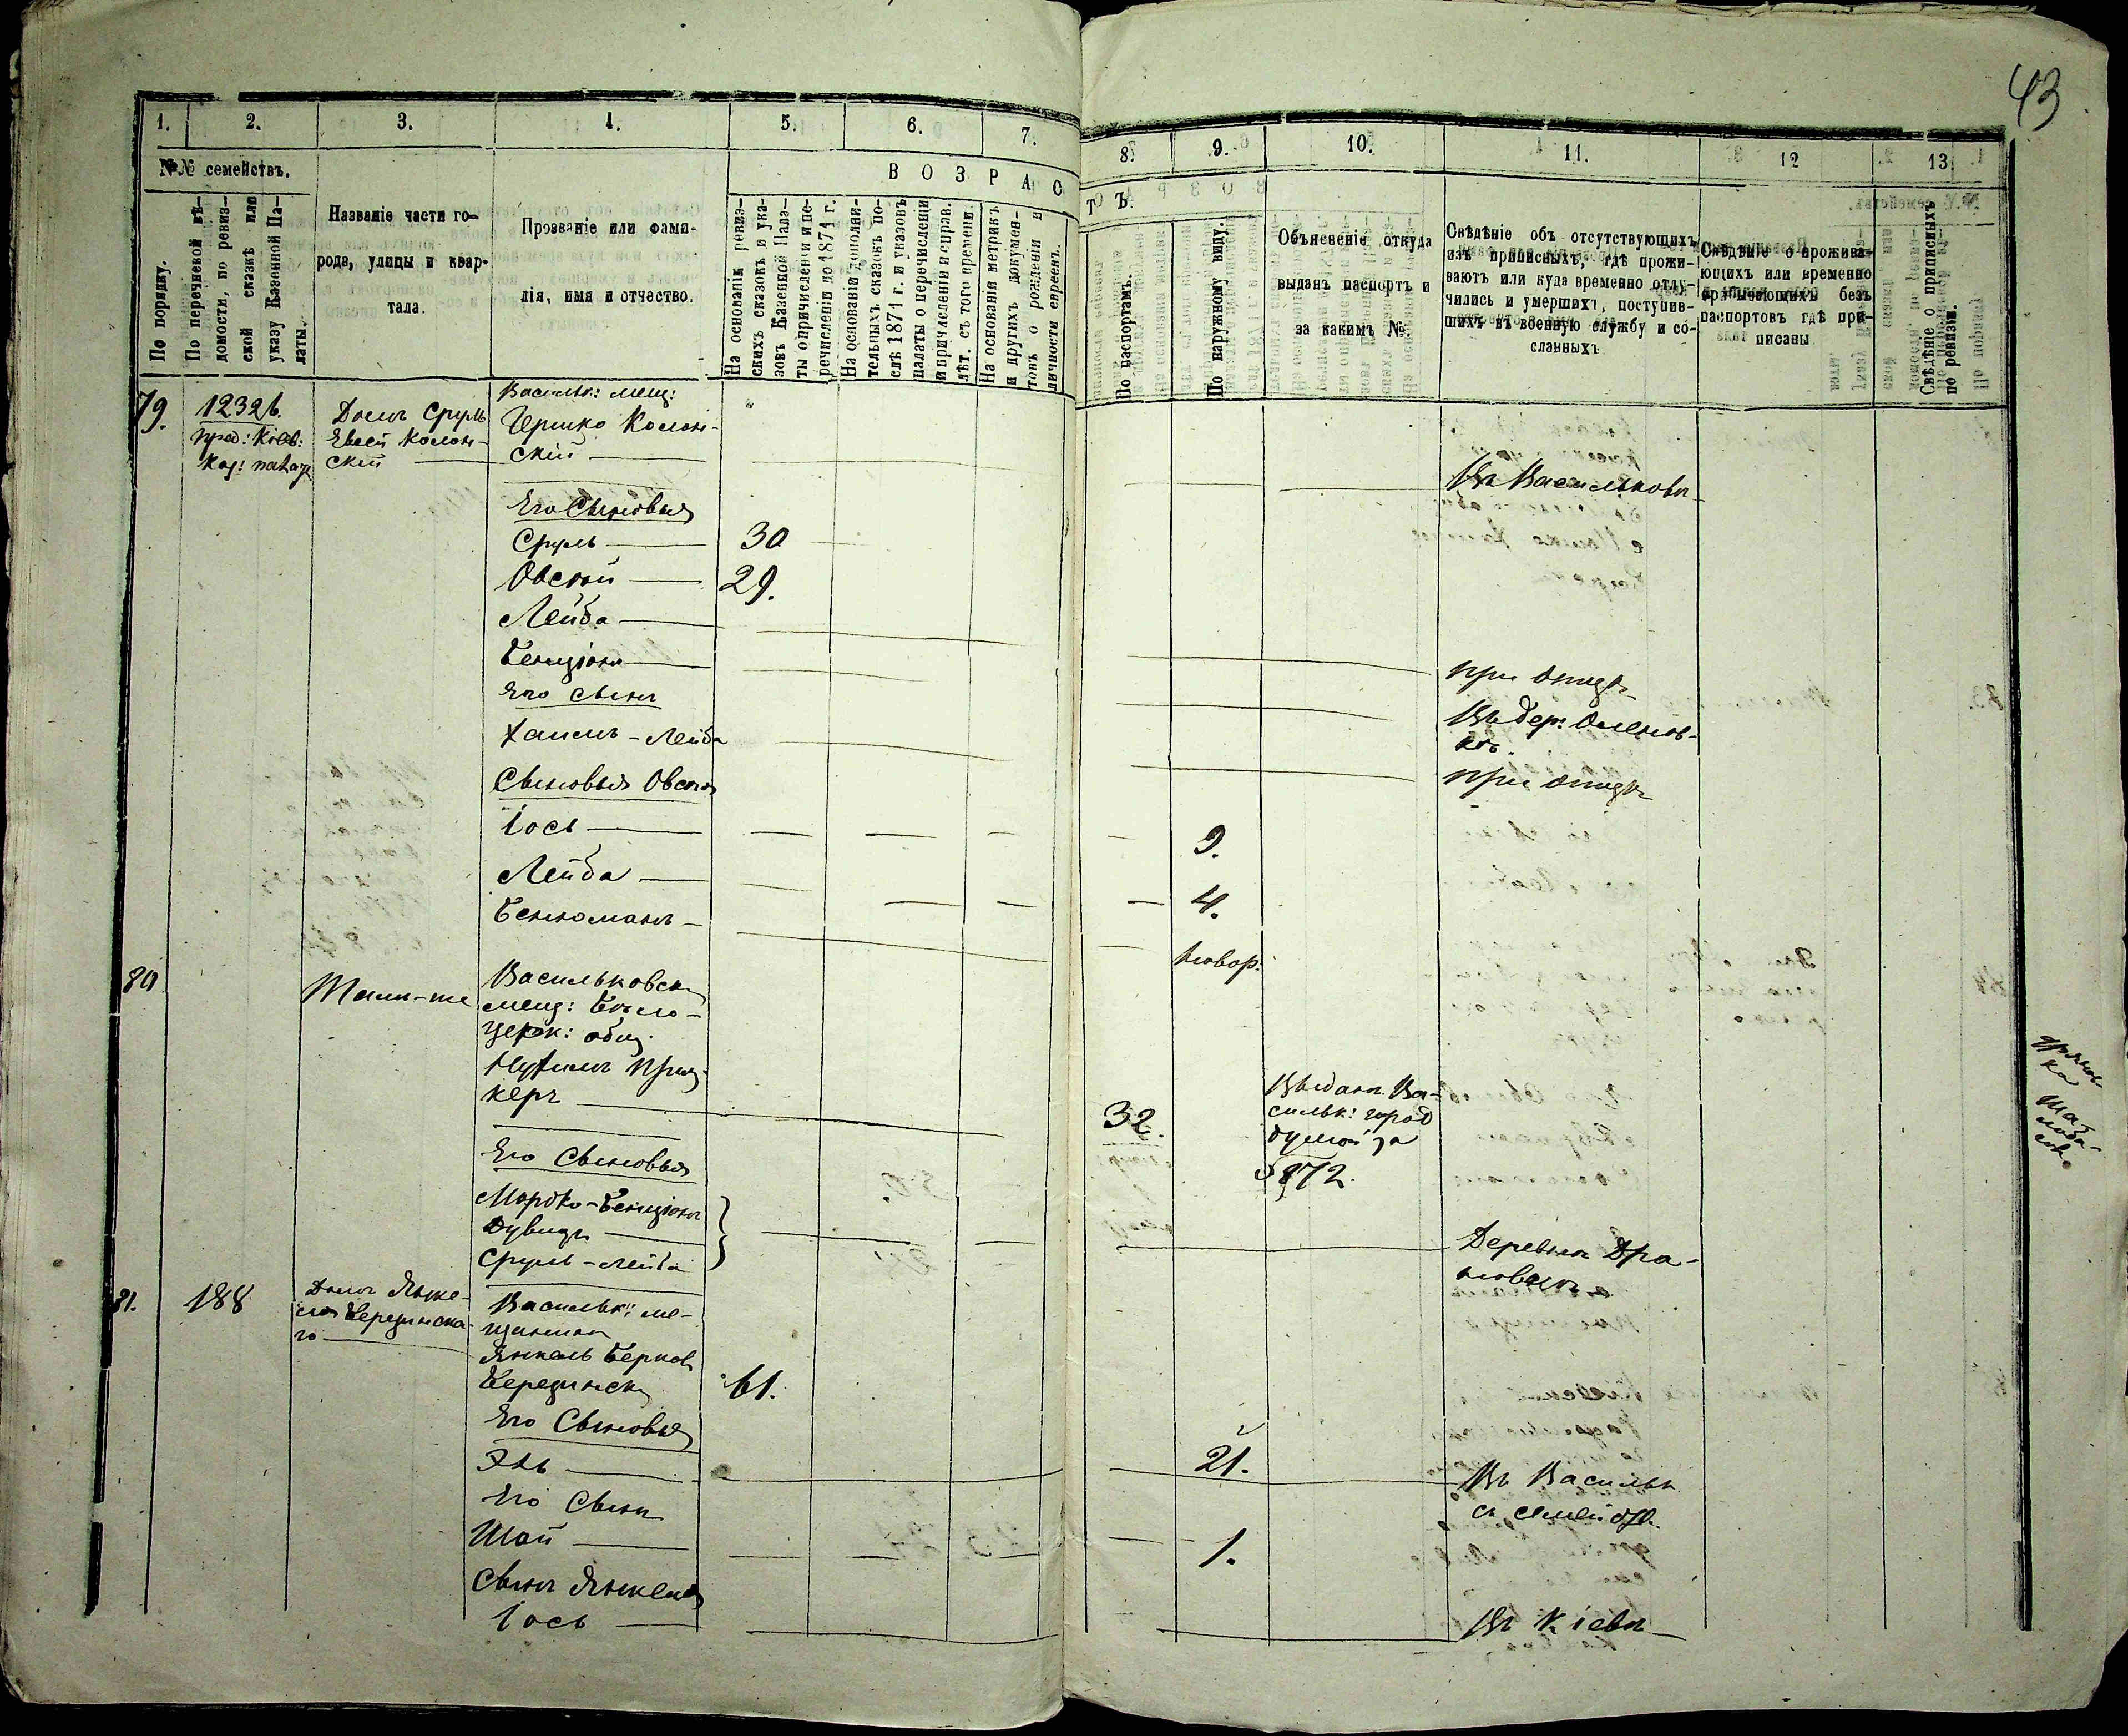 43
1. 2. 3. 4. 5. 6. 7. 8. 9. 10. 11. 12 13
№№ семействъ.
По порядку.
По перечневой вѣ-
домости, по ревиз-
ской сказкѣ или
указу Казенной Па-
латы.
Названіе части го-
рода, улицы и квар-
тала.
Прозваніе или фами-
лія, имя и отчество.
ВОЗРАСТЪ.
На основаніи ревиз-
скихъ сказокъ и ука-
зовъ Казенной Пала-
ты о причисленіи и пе-
речисленіи до 1871 г.
На основаніи дополни-
тельныхъ сказокъ по-
слѣ 1871 г. и указовъ
палаты о перечисленіи
и причисленіи и справ.
лѣт. съ того времени.
На основаніи метрикъ
и другихъ докумен-
товъ о рожденіи и
личности евреевъ.
По паспортамъ.
По наружному виду.
Объясненіе откуда
выданъ паспортъ и
за какимъ №.
Свѣдѣніе объ отсутствующихъ
изъ приписныхъ, гдѣ прожи-
ваютъ или куда временно отлу-
чились и умершихъ, поступив-
шихъ въ военную службу и со-
сланныхъ
Свѣдѣніе о прожива-
ющихъ или временно
безъ
паспортовъ гдѣ при-
писаны
Свѣдѣніе о приписныхъ
по ревизіи.
79.
12326.
Домъ Сруль
Евсей Колон-
скій
Васильк: мещ:
Гершко Колон-
скій
Въ Васильковѣ
Его Сыновья
Сруль 30
Овсей 29.
Лейба
Бенціонъ при отцѣ
Его сынъ
Хаимъ-Лейба Въ дер:
Сыновья Овсея при отцѣ
Іось 9.
Лейба 4.
Бенюманъ новор:
80
Тамъ-же
Васильковск
мещ: Бѣло-
церк: общ.
Нухимъ
керъ
32.
Выданъ Ва-
сильк: город
думой за
5872.
Его Сыновья
Мордко-Бенціонъ
Дувидъ
Сруль-Лейба
Деревня
81. 188
Домъ Янке-
ля Березинска-
го
Васильк: ме-
щанинъ
Янкель Берков
Березинск
61.
Его Сыновья
Эль 21.
Въ Васильк
Его Сынъ
Шай 1.
Сынъ Янкеля
Іось Въ Кіевѣ